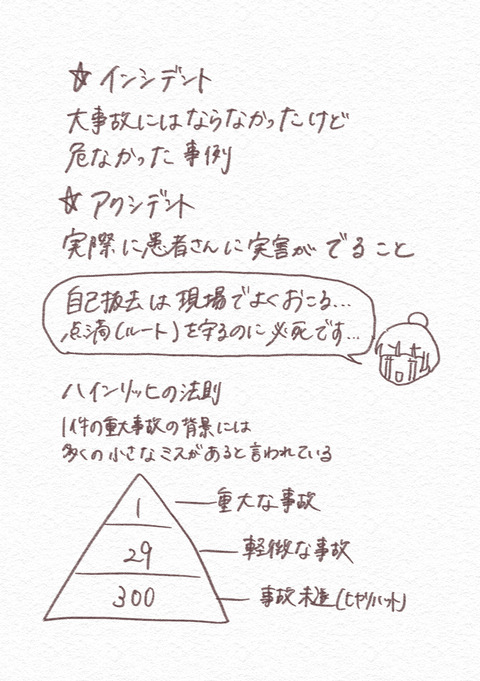 ☆インシデント
大事故にはならなかったけど
危なかった事例
☆アクシデント
実際に患者さんに実害がでること
自己抜去は現場でよくおこる…
点滴(ルート)を守るのに必死です…
ハインリッヒの法則
1件の重大事故の背景には
多くの小さなミスがあると言われている
1
重大な事故
29
軽微な事故
300
事故未遂(ヒヤリハット)